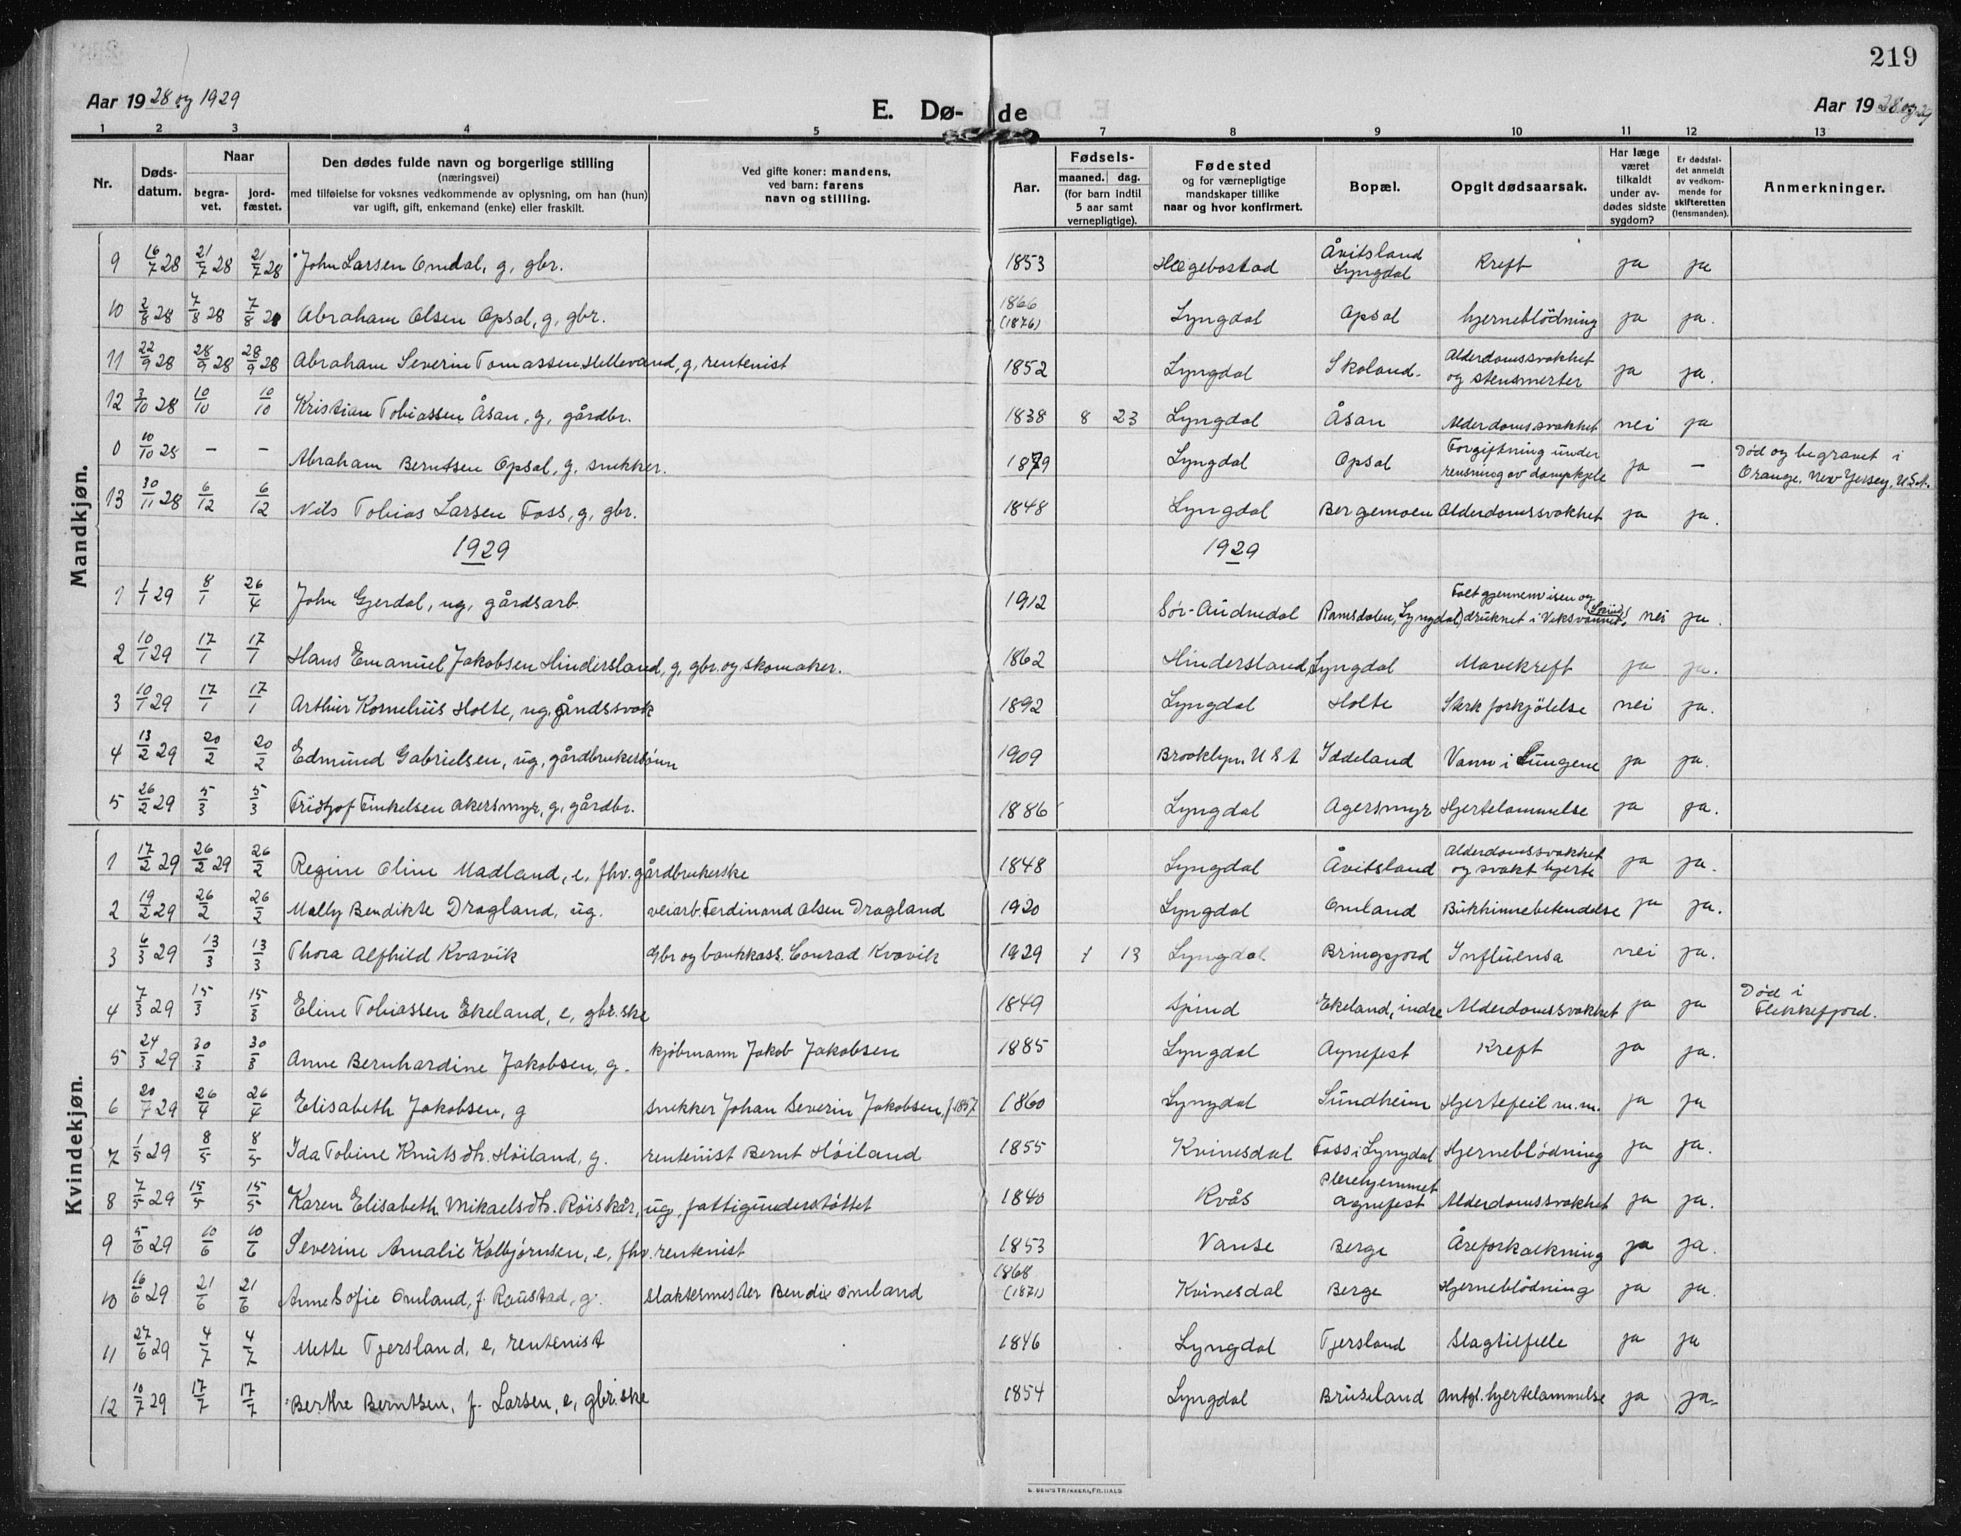 219
Aar 1928 og 1929 E. Dø-de Aar 1928 og 29
1 2 3 4 5 7 8 9 10 11 12 13
Nr. Døds-datum. Naar begra-vet. jord-fæstet. Den dødes fulde navn og borgerlige stilling (næringsvei) med tilføielse for voksnes vedkommende av oplysning, om han (hun) var ugift, gift, enkemand (enke) eller fraskilt. Ved gifte koner: mandens, ved barn: farens navn og stilling. Aar. Fødsels-maaned. dag. (for barn indtil 5 aar samt vernepligtige). Fødested og for værnepligtige mandskaper tillike naar og hvor konfirmert. Bopæl. Opgit dødsaarsak. Har læge været tilkaldt under av-dødes sidste sygdom? Er dødsfal-det anmeldt av vedkom-mende for skifteretten (lensmanden). Anmerkninger.
Mandkjøn.
9 16/7 28 21/7 28 21/7 28 John Larsen Omdal, g, gbr. 1853 Hægebostad Åvitsland Lyngdal Kreft ja ja
10 2/8 28 7/8 28 7/8 28 Abraham Olsen Opsal, g, gbr. 1866 (1876) Lyngdal Opsal hjerneblödning ja ja.
11 22/9 28 28/9 28 28/9 28 Abraham Severin Tomassen Hellevand, g, rentenist 1852 Lyngdal Skoland. Alderdomssvakhet og stensmerter ja ja.
12 3/10 28 10/10 10/10 Kristian Tobiassen Åsan, g, gårdbr. 1838 8 23 Lyngdal Åsan Alderdomssvakhet nei ja
0 10/10 28 - - Abraham Berntsen Opsal, g. snekker. 1879 Lyngdal Opsal Forgiftning under rensning av dampkjele ja - Död og begravet i Orange, New Yersey, U.S.A.
13 30/11 28 6/12 6/12 Nils Tobias Larsen Foss, g, gbr. 1848 Lyngdal Bergemoen Alderdomssvakhet ja ja.
1929 1929
1 1/1 29 8/1 26/4 John Gjerdal, ug, gårdsarb. 1912 Sör-Audnedal Ramsdalen, Lyngdal Falt gjennem isen og druknet i Viksvannet, Spind nei ja.
2 10/1 29 17/1 17/1 Hans Emanuel Jakobsen Hindersland, g, gbr. og skomaker. 1862 Hindersland, Lyngdal Mavekreft ja ja.
3 10/1 29 17/1 17/1 Arthur Kornelius Holte, ug, åndssvak 1892 Lyngdal Holte Sterk forkjölelse nei ja.
4 13/2 29 20/2 20/2 Edmund Gabrielsen, ug, gårdbrukersönn 1909 Brooklyn, U S A Iddeland Vann i Lungene ja ja.
5 26/2 29 5/3 5/3 Fridtjof Finkelsen Akersmyr, g, gårdbr. 1886 Lyngdal Agersmyr Hjertelammelse ja ja.
Kvindekjøn.
1 17/2 29 26/2 29 26/2 Regine Oline Madland, e, fhv. gårdbrukerske 1848 Lyngdal Åvitsland Alderdomssvakhet og svakt hjerte ja ja.
2 19/2 29 26/2 26/2 Mally Bendikte Dragland, ug. veiarb. Ferdinand Olsen Dragland 1920 Lyngdal Omland Bukhinnebetendelse ja ja.
3 6/3 29 13/3 13/3 Thora Alfhild Kvavik Gbr og bankkass. Conrad Kvavik 1929 1 13 Lyngdal Bringsjord Influensa nei ja.
4 7/3 29 15/3 15/3 Eline Tobiassen Ekeland, e, gbr.ske 1849 Spind Ekeland, indre Alderdomssvakhet ja ja Död i Flekkefjord.
5 24/3 29 30/3 30/3 Anne Bernhardine Jakobsen, g. kjöbmann Jakob Jakobsen 1885 Lyngdal Agnefest Kreft ja ja.
6 20/7 29 26/4 26/4 Elisabeth Jakobsen, g snekker Johan Severin Jakobsen, f 1857 1860 Lyngdal Sundheim Hjertefeil m.m. ja ja
7 1/5 29 8/5 8/5 Ida Tobine Knutsdtr. Höiland, g. rentenist Bernt Höiland 1855 Kvinesdal Foss i Lyngdal Hjerneblödning ja ja.
8 7/5 29 15/5 15/5 Karen Elisabeth Mikaelsdtr. Röiskår, ug, fattigunderstöttet 1840 Kvås Pleiehjemmet Agnefest Alderdomssvakhet ja ja.
9 5/6 29 10/6 10/6 Severine Amalie Kolbjörnsen, e, fhv. rentenist 1853 Vanse Berge Åreforkalkning ja ja.
10 16/6 29 21/6 21/6 Anne Sofie Omland, f. Raustad, g. slaktermester Bendix Omland 1868 (1871) Kvinesdal Berge Hjerneblödning ja ja.
11 27/6 29 4/7 4/7 Mette Tjersland, e, rentenist 1846 Lyngdal Tjersland Slagtilfelle ja ja
12 10/7 29 17/7 17/7 Berthe Berntsen, f. Larsen, e, gbr.ske 1854 Lyngdal Bruseland Antgl. hjertelammelse ja ja.